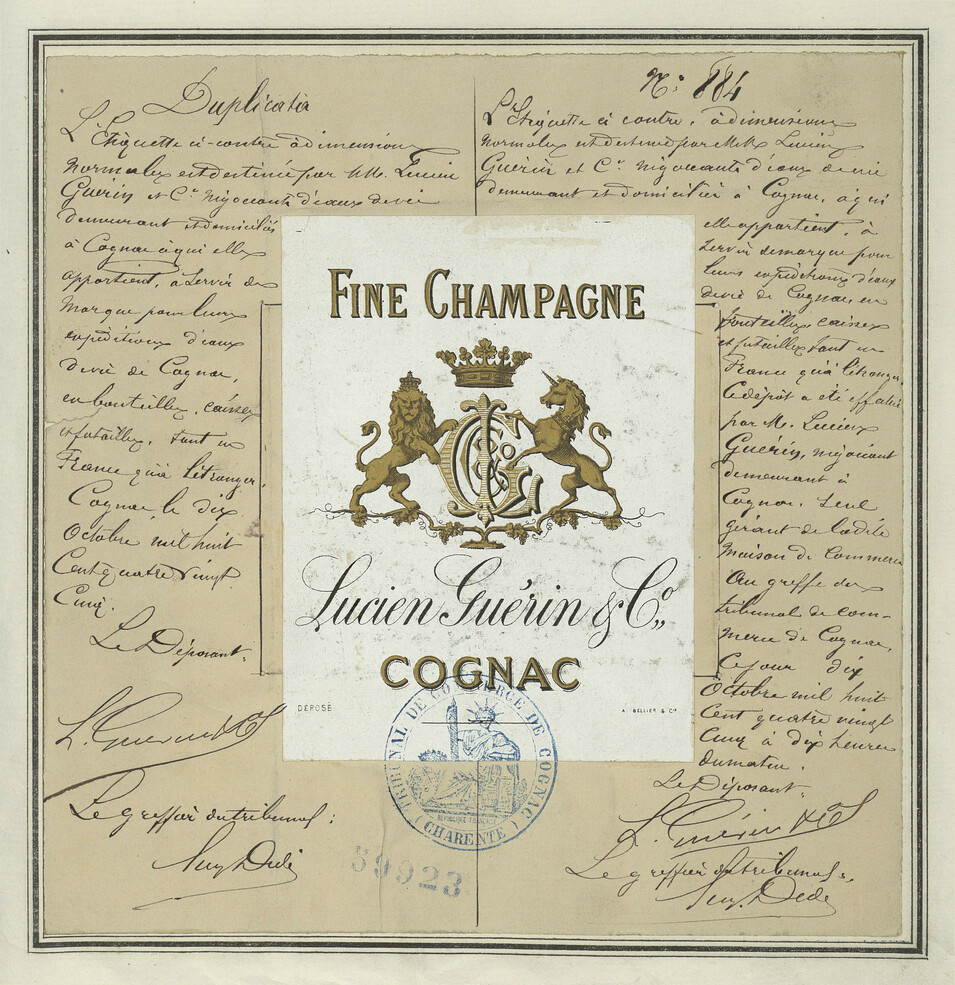 Duplicata
L'Etiquette ci-contre à dimensions
normales est destinée par MM. Lucien
Guérin et Cie. négociants d'eaux de vie
demeurant et domiciliés
à Cognac à qui elle
appartient, à servir de
marque pour leurs
expéditions d'eaux
de vie de Cognac,
en bouteilles, caisses
et futailles, tant en
France qu'à l'étranger.
Cognac, le dix
Octobre mil huit
Cent quatre vingt
Cinq.
Le Déposant.
L. Guérin & Co
Le greffier du tribunal :
No: 884
L'Etiquette ci contre, à dimensions
normales est destinée par MM. Lucien
Guérin et Cie. négociants d'eaux de vie
demeurant et domiciliés à Cognac, à qui
elle appartient, à
servir de marque pour
leurs expéditions d'eaux
de vie de Cognac, en
bouteilles, caisses
et futailles tant en
France qu'à l'étranger.
Ce dépôt a été effectué
par M. Lucien
Guérin, négociant
demeurant à
Cognac, seul
gérant de ladite
maison de Commerce
Au greffe du
tribunal de com-
merce de Cognac,
Ce jour dix
Octobre mil huit
Cent quatre vingt
Cinq à dix heures
du matin.
Le Déposant.
L. Guérin & Co
Le greffier du tribunal :
FINE CHAMPAGNE
LG & Co
Lucien Guérin & Co.
COGNAC
DÉPOSÉ
A. BELLIER & Cie
TRIBUNAL DE COMMERCE DE COGNAC
RÉPUBLIQUE FRANÇAISE
(CHARENTE)
39923